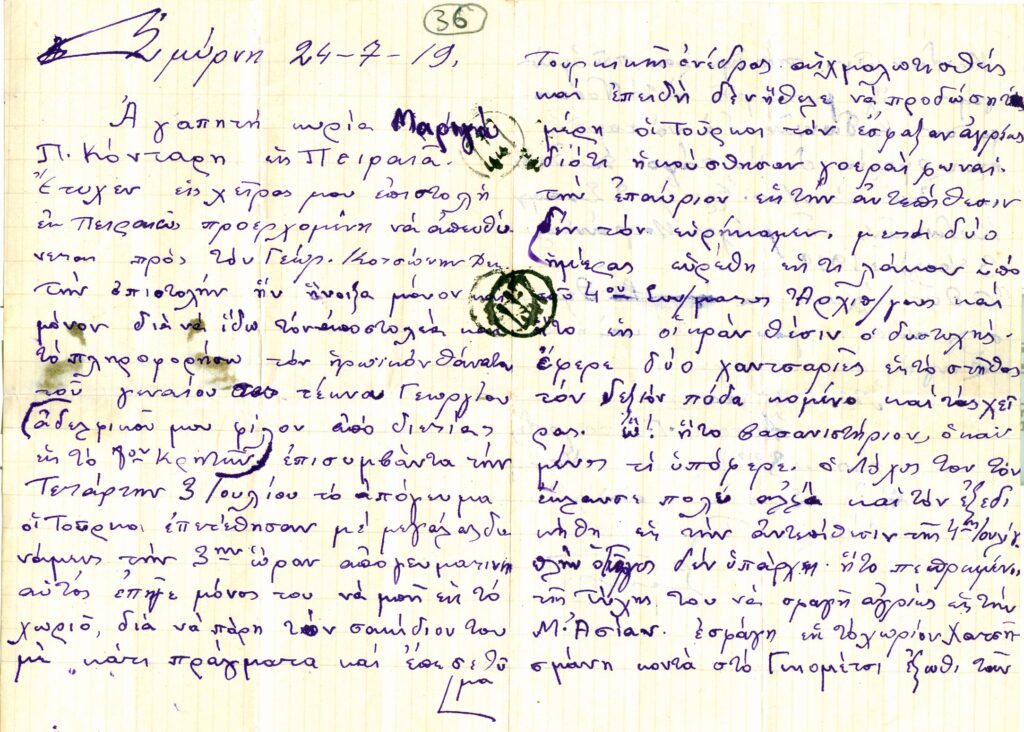 36
Σμύρνη 24-7-19.
Ἀγαπητή κυρία Μαρηγώ
Π. Κόνταρη εἰς Πειραιᾶ.
Ἔτυχεν εἰς χεῖρας μου ἐπιστολή
ἐκ Πειραιῶς προερχομένη νά ἀπευθύ
νεται πρός τόν Γεώργ. Κοτσώνην
τήν ἐπιστολήν ἥν ἤνοιξα μόνον καί
μόνον διά νά ἴδω τόν ἀποστολέα καί
τό πληροφορήσω τόν ἡρωϊκόν θάνατον
τοῦ γενναίου τέκνου Γεωργίου
(ἀδελφικοῦ μου φίλου ἀπό διετίας
εἰς τό 7ον Κρητῶν) ἐπισυμβάντα τήν
Τετάρτην 3 Ἰουλίου τό ἀπόγευμα
οἱ Τοῦρκοι ἐπετέθησαν μέ μεγάλας δυ
νάμεις τήν 3ην ὥραν ἀπογευματινήν
αὐτός ἐπῆγε μόνος του νά μπῆ εἰς τό
χωριό, διά νά πάρη τό σακίδιον του
μέ κάτι πράγματα καί ἔπεσε θῦ
μα
Τουρκικῆς ἐνέδρας αἰχμαλωτισθείς
καί ἐπειδή δέν ἤθελε νά προδώση τά
μέρη οἱ Τοῦρκοι τόν ἔσφαξαν ἀγρίως
διότι ἠκούσθησαν γοεραί φωναί.
τήν ἐπαύριον εἰς τήν ἀντεπίθεσιν
δέν τόν εὑρήκαμεν, μετά δύο
ἡμέρας εὑρέθη εἰς τι λάκκον ὑπό
τοῦ 4ου Συν/ματος Ἀρχιπ/γους καί
ἦτο εἰς οἰκράν θέσιν ὁ δυστυχής.
ἔφερε δύο χαντσαριές εἰς τό στῆθος
τόν δεξιόν πόδα κομένο καί τάς χεῖ
ρας. Ὤ! ἦτο βασανιστήριον, ὁ καϋ
μένος τί ὑπόφερε. ὁ λόχος του τόν
ἔκλαυσε πολύ ἀλλά καί τόν ἐξεδι
κήθη εἰς τήν ἀντεπίθεσιν τῆς 4ης Ἰουλίου
πλήν ὁ Γεῶργος δέν ὑπάρχει. ἦτο πεπρωμένον
τῆς τύχης του νά σφαγῆ ἀγρίως εἰς τήν
Μ. Ἀσίαν. ἐσφάγη εἰς τό χωρίον Χατση
σμάνη κοντά στό Γκιομέτσι ἔξωθι τῶν